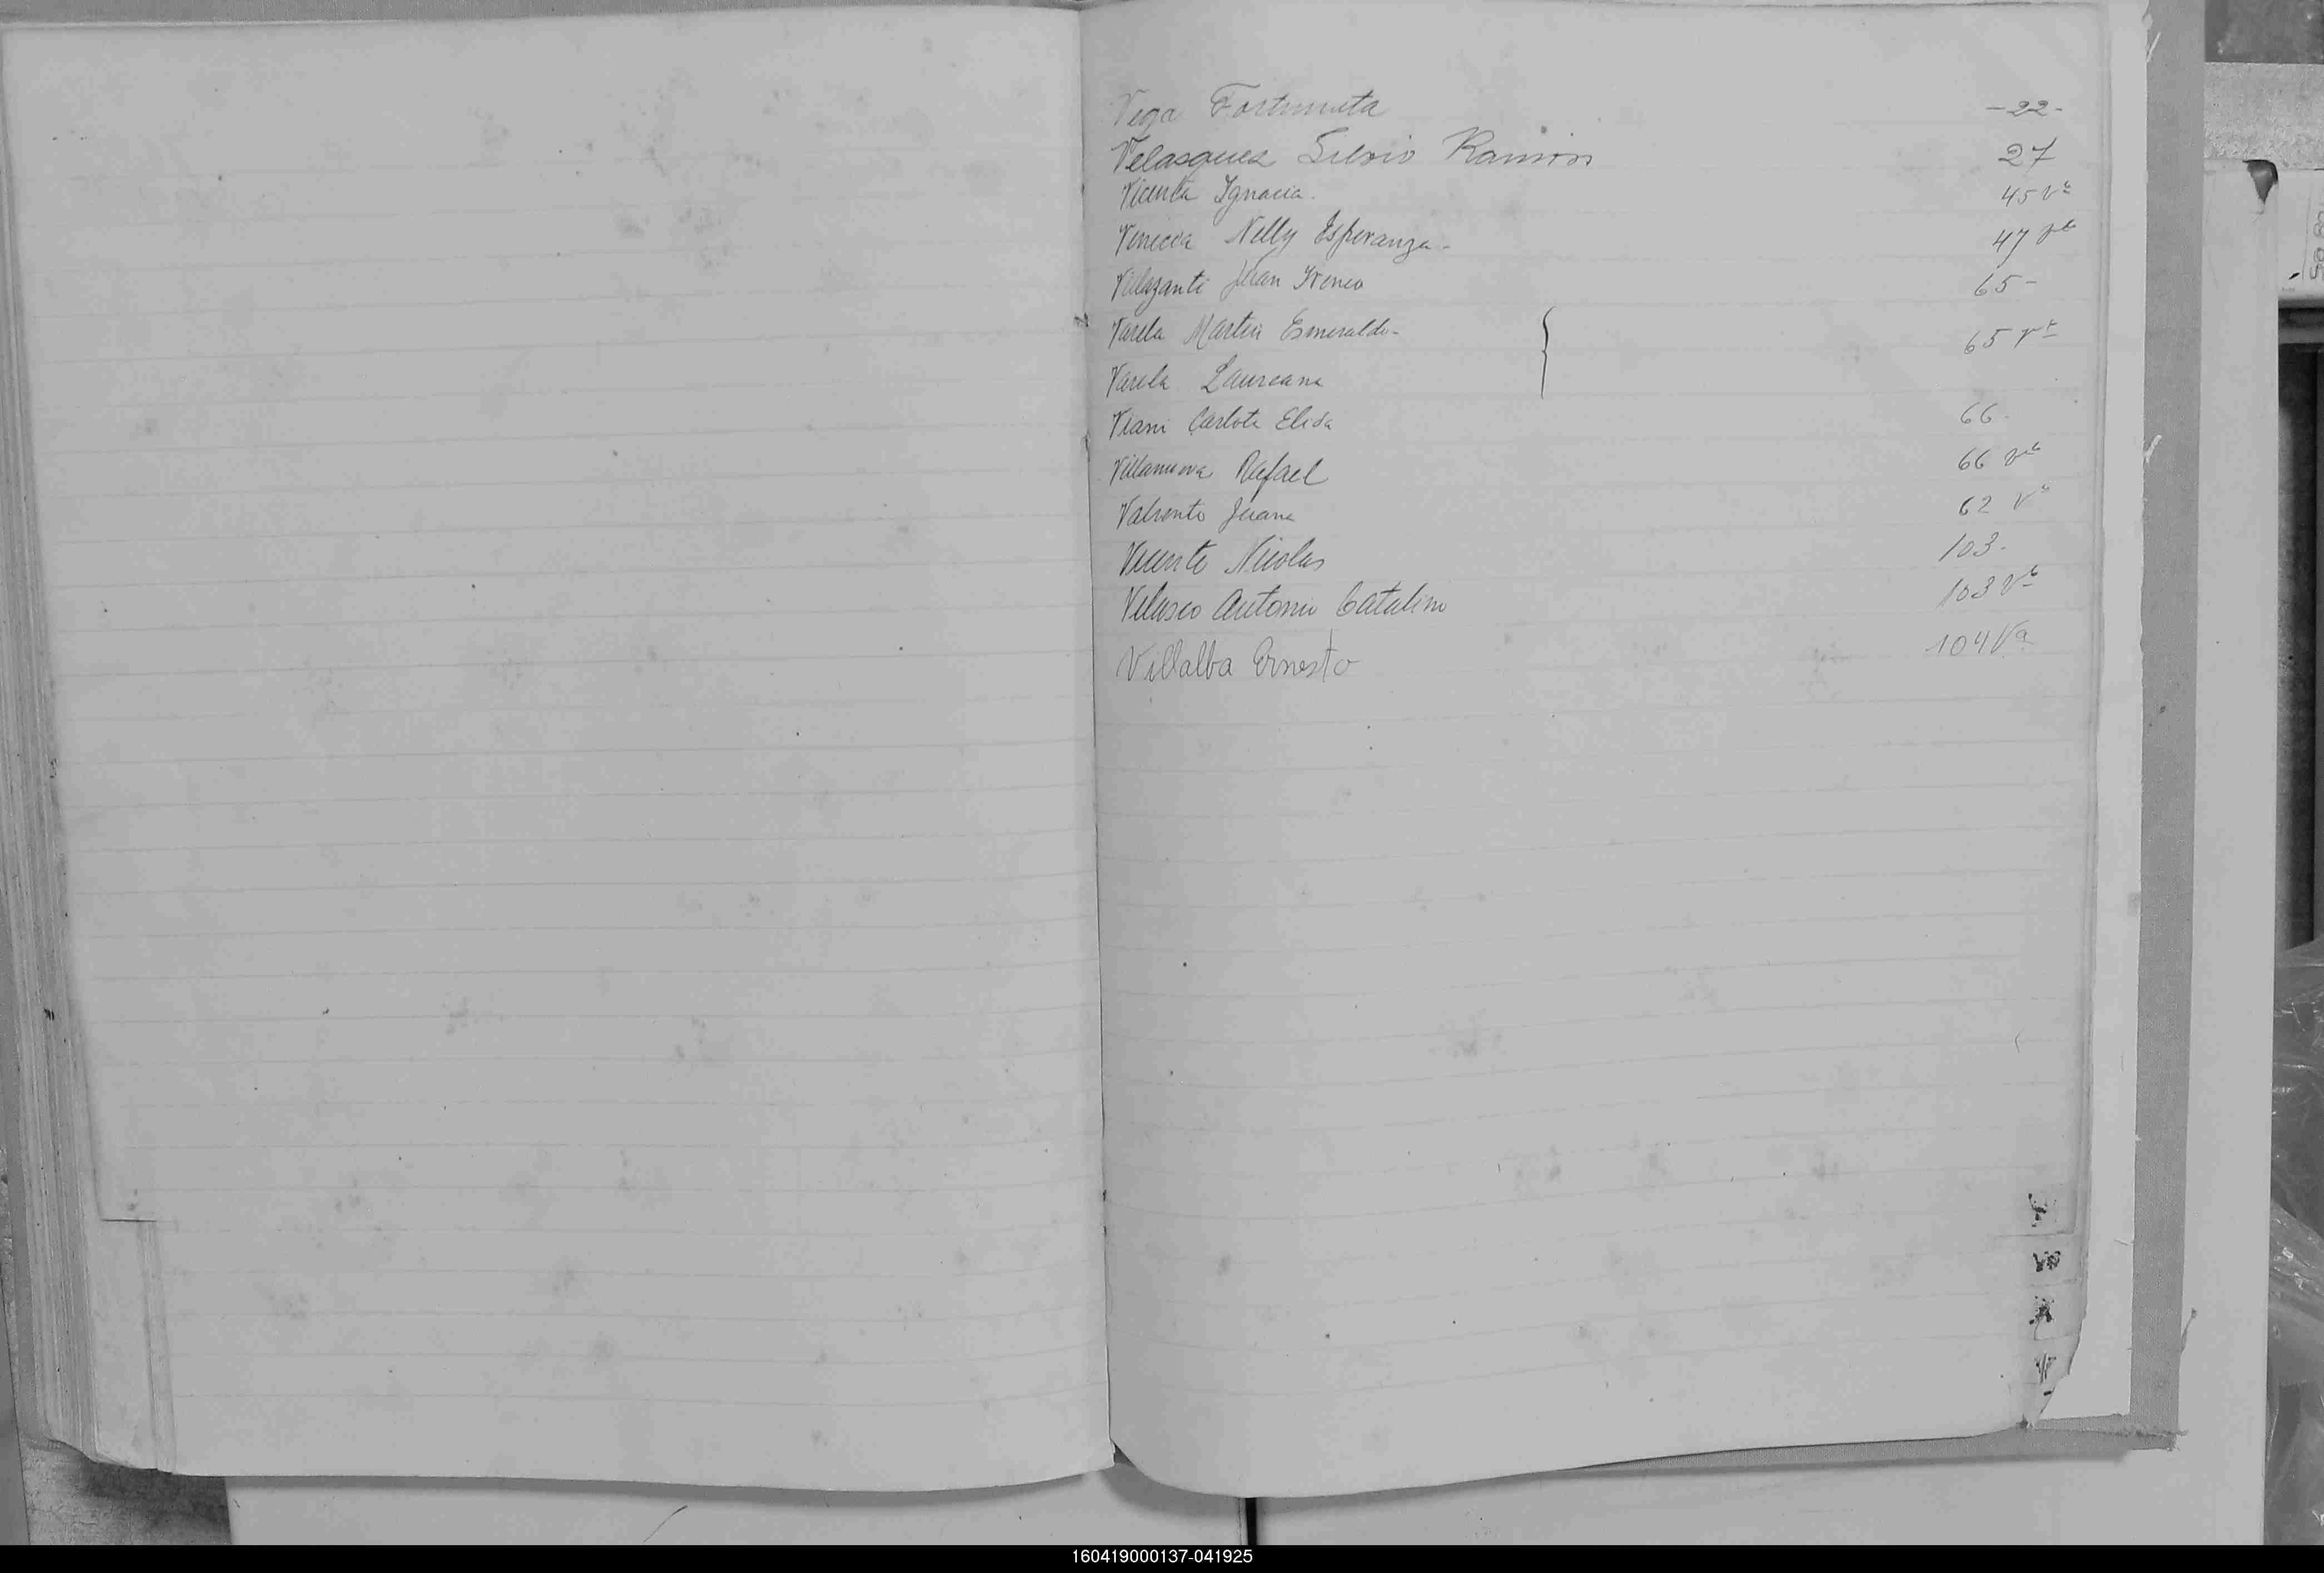 Vega Fortunata -22-
Velasquez Silvio Ramón 27
Vicenta Ignacia. 45 Vta
Nelly Esperanza- 47 vta
Juan Ireneo 65-
Varela Martin Esmeraldo- 65 vta
Varela Laureana
Viani Carlota Elida 66-
Villanueva Rafael 66 vta
Juana 62 Va
Vicente Nicolas 103-
Velasco Antonio Catalino 103 Vta
Villalba Ernesto 104 Va
160419000137-041925